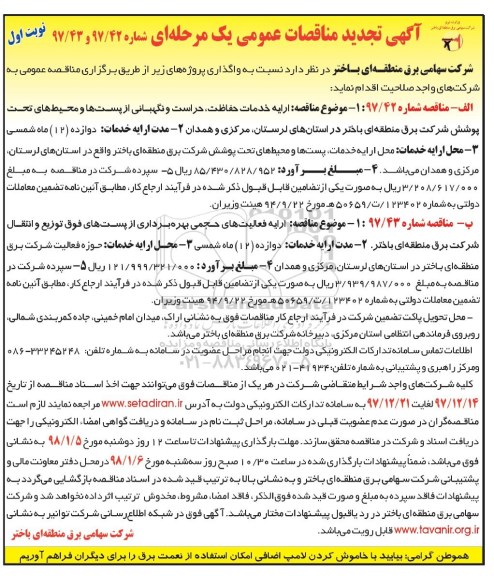 آگهی تجدید مناقصات عمومی یک مرحله‌ای شماره ۹۷/۴۲ و ۹۷/۴۳
نوبت اول
شرکت سهامی برق منطقه‌ای باختر در نظر دارد نسبت به واگذاری پروژه‌های زیر از طریق برگزاری مناقصه عمومی به
شرکت‌های واجد صلاحیت اقدام نماید:
الف- مناقصه شماره ۹۷/۴۲ : ۱- موضوع مناقصه: ارایه خدمات حفاظت، حراست و نگهبانی از پست‌ها و محیط‌های تحت
پوشش شرکت برق منطقه‌ای باختر در استان‌های لرستان، مرکزی و همدان ۲- مدت ارایه خدمات: دوازده (۱۲) ماه شمسی
۳- محل ارایه خدمات: محل ارایه خدمات، پست‌ها و محیط‌های تحت پوشش شرکت برق منطقه‌ای باختر واقع در استان‌های لرستان،
مرکزی و همدان می‌باشد. ۴- مبلغ برآورد: ۸۵/۴۳۰/۸۲۸/۹۵۲ ریال ۵- سپرده شرکت در مناقصه به مبلغ
۳/۲۰۸/۶۱۷/۰۰۰ ریال به صورت یکی از تضامین قابل قبول ذکر شده در فرآیند ارجاع کار، مطابق آئین نامه تضمین معاملات
دولتی به شماره ۱۲۳۴۰۲/ت/۵۰۶۵۹ هـ مورخ ۹۴/۹/۲۲ هیئت وزیران.
ب- مناقصه شماره ۹۷/۴۳ : ۱- موضوع مناقصه: ارایه فعالیت‌های حجمی بهره‌برداری از پست‌های فوق توزیع و انتقال
شرکت برق منطقه‌ای باختر. ۲- مدت ارایه خدمات: دوازده (۱۲) ماه شمسی ۳- محل ارایه خدمات: حوزه فعالیت شرکت برق
منطقه‌ای باختر در استان‌های لرستان، مرکزی و همدان ۴- مبلغ برآورد: ۱۲۱/۹۹۹/۳۲۱/۰۰۰ ریال ۵- سپرده شرکت در
مناقصه به مبلغ ۳/۹۳۹/۹۸۷/۰۰۰ ریال به صورت یکی از تضامین قابل قبول ذکر شده در فرآیند ارجاع کار، مطابق آئین نامه
تضمین معاملات دولتی به شماره ۱۲۳۴۰۲/ت/۵۰۶۵۹ هـ مورخ ۹۴/۹/۲۲ هیئت وزیران.
- محل تحویل پاکت تضمین شرکت در فرآیند ارجاع کار مناقصات فوق به نشانی اراک، میدان امام خمینی، جاده کمربندی شمالی،
روبروی فرماندهی انتظامی استان مرکزی، دبیرخانه شرکت برق منطقه‌ای باختر می‌باشد.
اطلاعات تماس سامانه تدارکات الکترونیکی دولت جهت انجام مراحل عضویت در سامانه به شماره تلفن: ۳۳۲۴۵۲۴۸-۰۸۶
ومرکز راهبری و پشتیبانی به شماره تلفن: ۴۱۹۳۴-۰۲۱ می‌باشد.
کلیه شرکت‌های واجد شرایط متقاضی شرکت در هر یک از مناقصات فوق می‌توانند جهت اخذ اسناد مناقصه از تاریخ
۹۷/۱۲/۱۴ لغایت ۹۷/۱۲/۲۱ به سامانه تدارکات الکترونیکی دولت به آدرس www.setadiran.ir مراجعه نمایند لازم است
مناقصه‌گران در صورت عدم عضویت قبلی در سامانه، مراحل ثبت نام در سامانه و دریافت گواهی امضا، الکترونیکی را جهت
دریافت اسناد و شرکت در مناقصه محقق سازند. مهلت بارگذاری پیشنهادات تا ساعت ۱۲ روز دوشنبه مورخ ۹۸/۱/۵ به نشانی
فوق می‌باشد، ضمناً پیشنهادات بارگذاری شده در ساعت ۱۰/۳۰ صبح روز سه‌شنبه مورخ ۹۸/۱/۶ درمحل دفتر معاونت مالی و
پشتیبانی شرکت سهامی برق منطقه‌ای باختر و به نشانی بالا به ترتیب قید شده در اسناد مناقصه بازگشایی می‌گردد به
پیشنهادات فاقد سپرده به مبلغ و صورت قید شده فوق‌الذکر، فاقد امضا، مشروط، مخدوش ترتیب اثر داده نخواهد شد و شرکت
برق منطقه‌ای باختر در رد یا قبول پیشنهادات مختار می‌باشد. آگهی فوق در شبکه اطلاع‌رسانی شرکت توانیر به نشانی
www.tavanir.org.ir قابل رویت می‌باشد.
شرکت سهامی برق منطقه‌ای باختر
هموطن گرامی: بیایید با خاموش کردن لامپ اضافی امکان استفاده از نعمت برق را برای دیگران فراهم آوریم